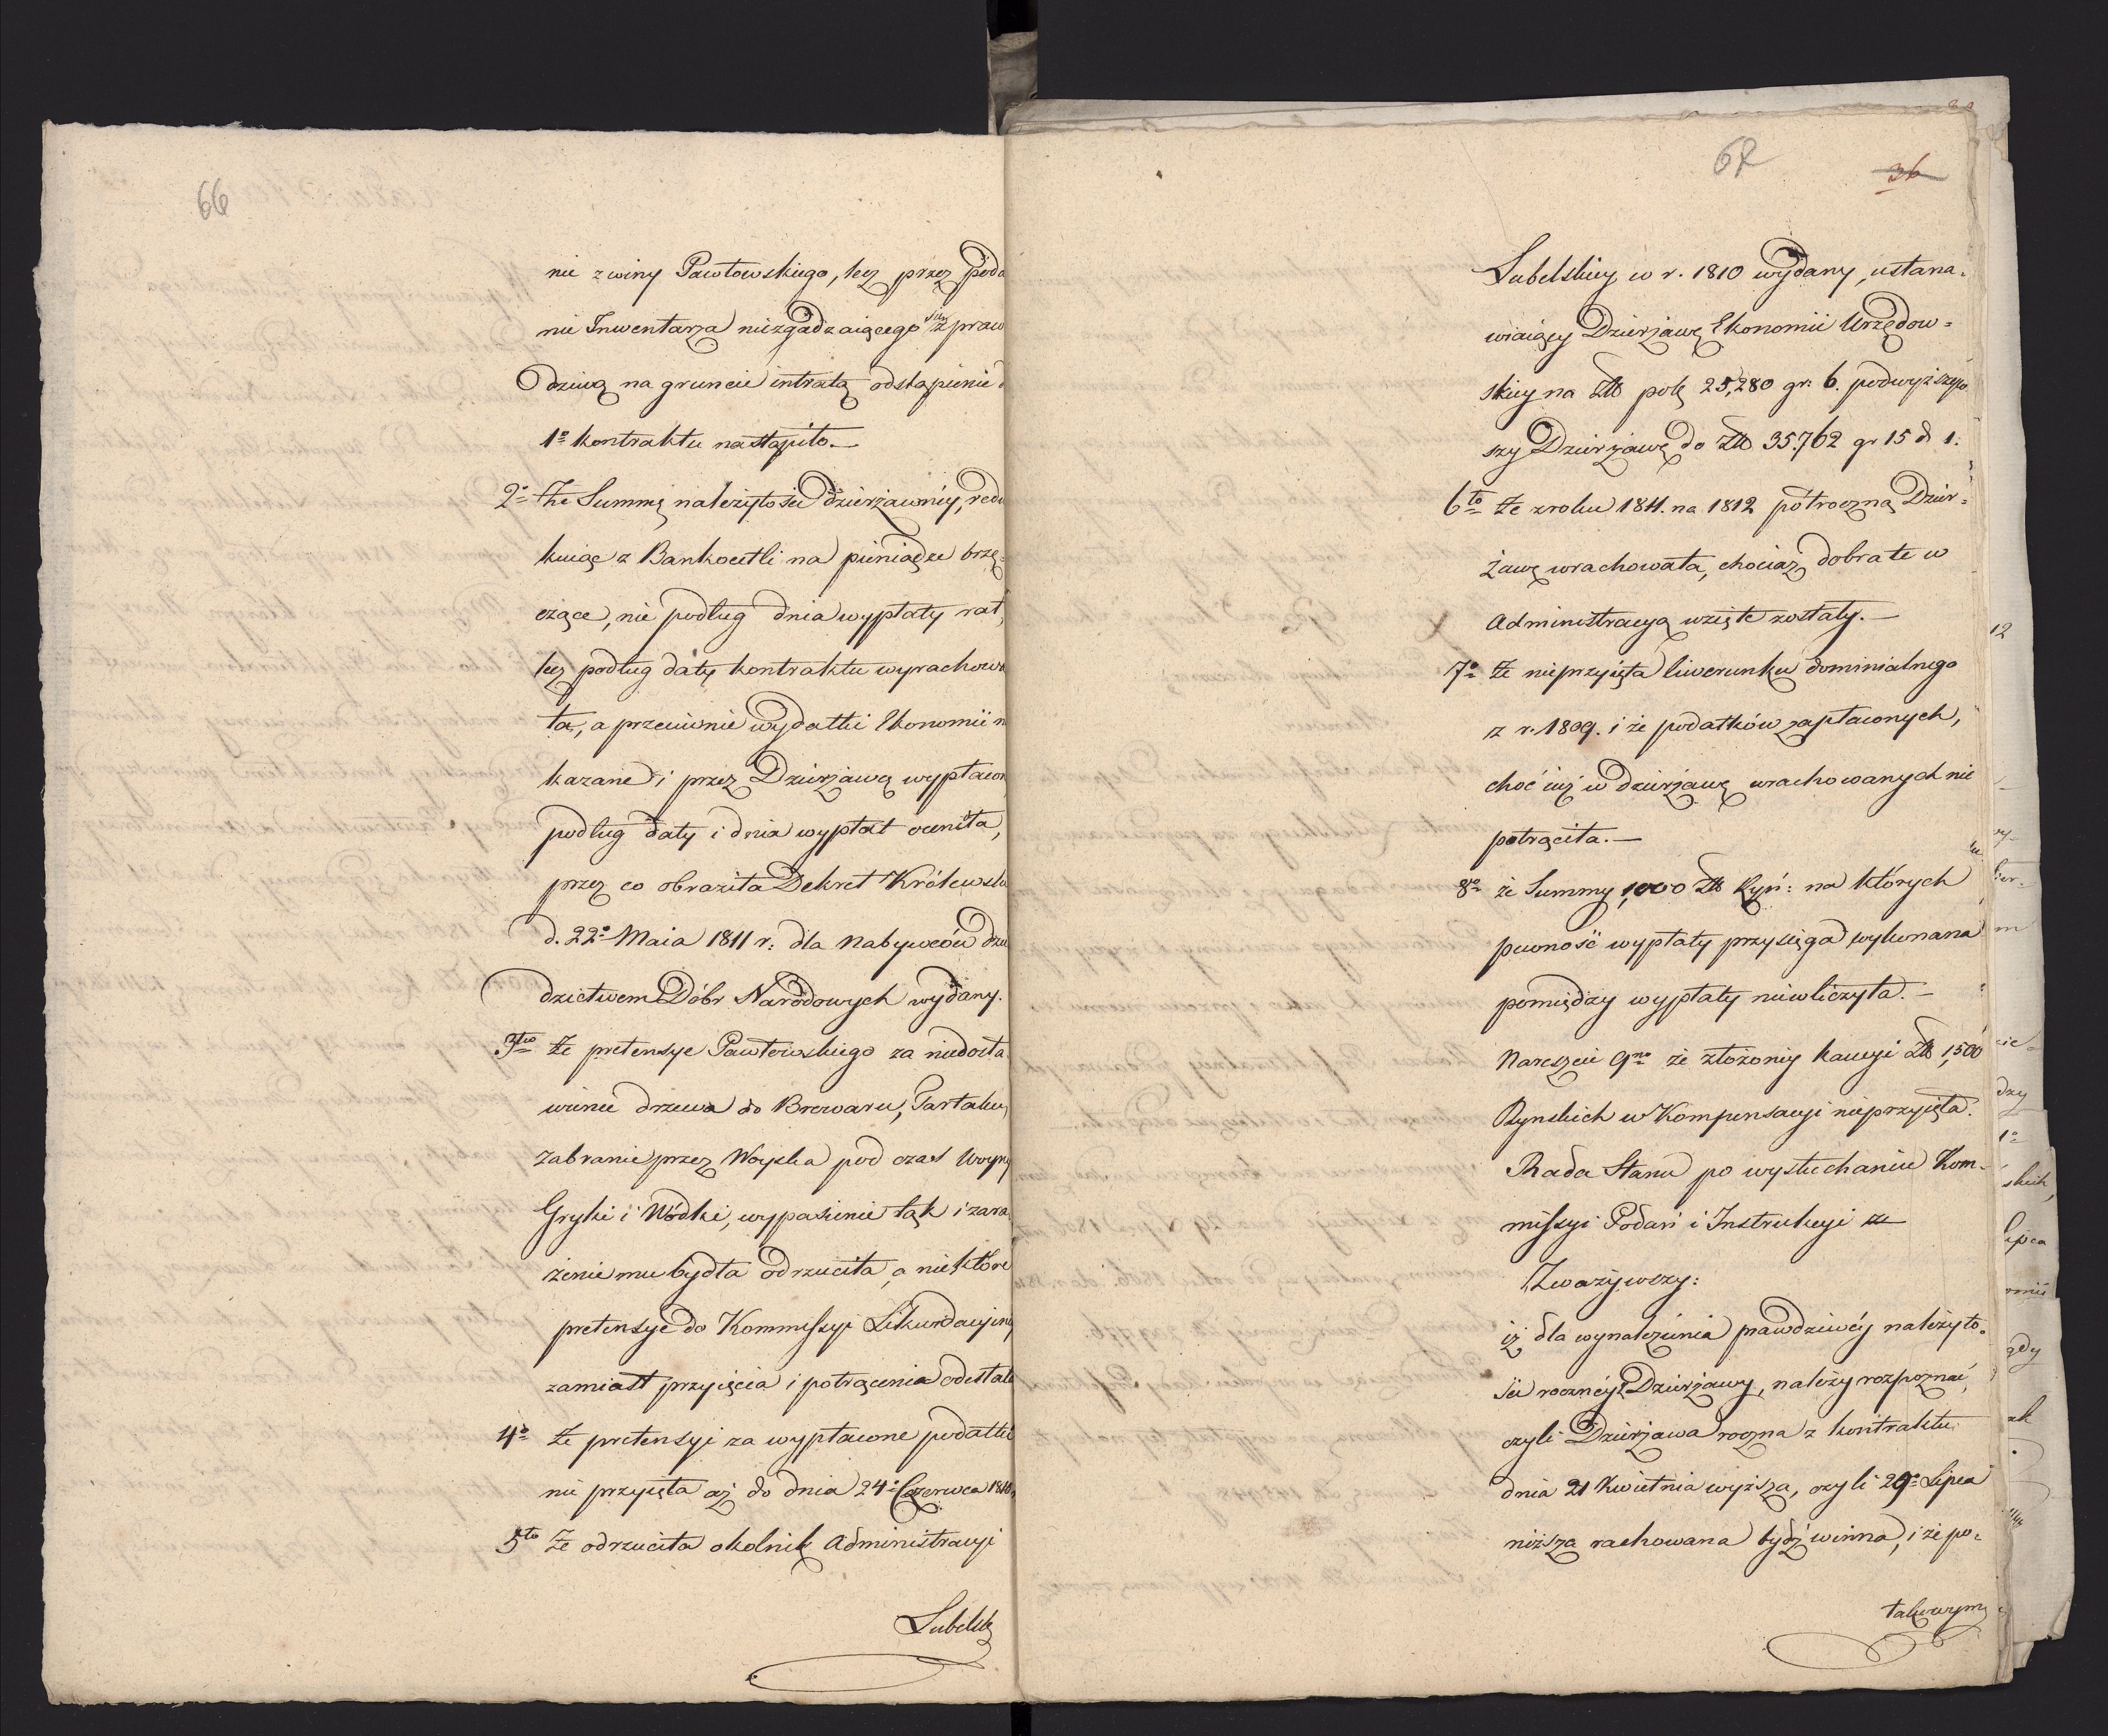 66
nie z winy Pawłowskiego, lecz przez poda
nie Inwentarza niezgadzaiącego się z praw
dziwą na gruncie intratą odstąpienie
1º kontraktu nastąpiło.—
2º Że Summę należytości dzierżawnéy, redu
kuiąc z Bankocetli na pieniądze brzę=
czące, nie podług dnia wypłaty rat,
lecz podług daty kontraktu wyrachowa
ła, a przeciwnie wydatki Ekonomii na
kazane i przez Dzierżawcę wypłacon
podług daty i dnia wypłat oceniła,
przez co obraziła Dekret Królewski
d. 22º Maia 1811 r: dla Nabywców dzie
dzictwem Dóbr Narodowych wydany.
3tio Że pretensye Pawłowskiego za niedosta
wienie drzewa do Browaru, Tartaku,
zabranie przez Woyska pod czas Woyny
Gryki i Wódki, wypasienie łąk i zara
żenie mu bydła odrzuciła, a niektóre
pretensye do Kommissyi Likwidacyiney
zamiast przyięcia i potrącenia odesłała
4º Że pretensyi za wypłacone podatki
nie przyięła aż do dnia 24º Czerwca 1810
5to Że odrzuciła okolnik Administracyi
Lubelsk
67
36
Lubelskiey w r. 1810 wydany, ustana=
wiaiący Dzierżawę Ekonomii Urzędow=
skiey na Zł pols 25,280 gr: 6. podwyższyw
szy Dzierżawę do Zł 35.762 gr 15 d 1.
6to Że z roku 1811. na 1812 półroczną Dzier=
żawę wrachowała, chociaż dobra te w
Administracyą wzięte zostały.—
7º Że nieprzyięła liwerunku dominialnego
z r. 1809. i że podatków zapłaconych,
choć iuż w dzierżawę wrachowanych nie
potrąciła.—
8º że Summy 1,000 Zł Ryń: na których
pewność wypłaty przysięga wykonana
pomiędzy wypłaty niewliczyła.—
Nareszcie 9no że złożoney kaucyi Zł 1,500
Rynskich w Kompensacyi nieprzyięła.
Rada Stanu po wysłuchaniu Kom=
missyi Podań i Instrukcyi
Zważywszy:
iż dla wynalezienia prawdziwéy należyto=
ści rocznéy Dzierżawy, należy rozpoznać,
czyli Dzierżawa roczna z kontraktu
dnia 21 Kwietnia wyższa, czyli 29º Lipca
niższa rachowana bydź winna, i że po=
takowym